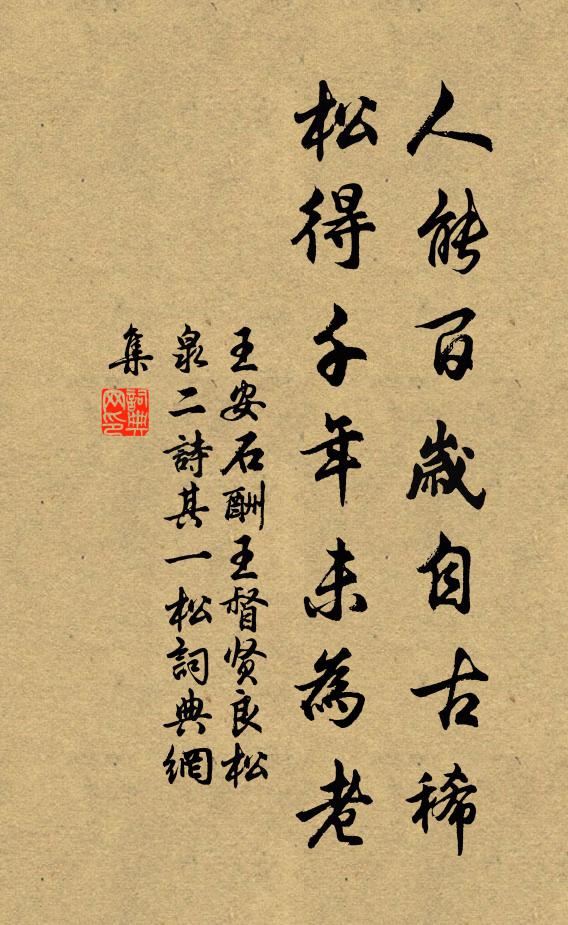 人能百歲自古稀
松得千年未為老
王安石酬王督贤良松
泉二詩其一松詞典網
集
詞典网印